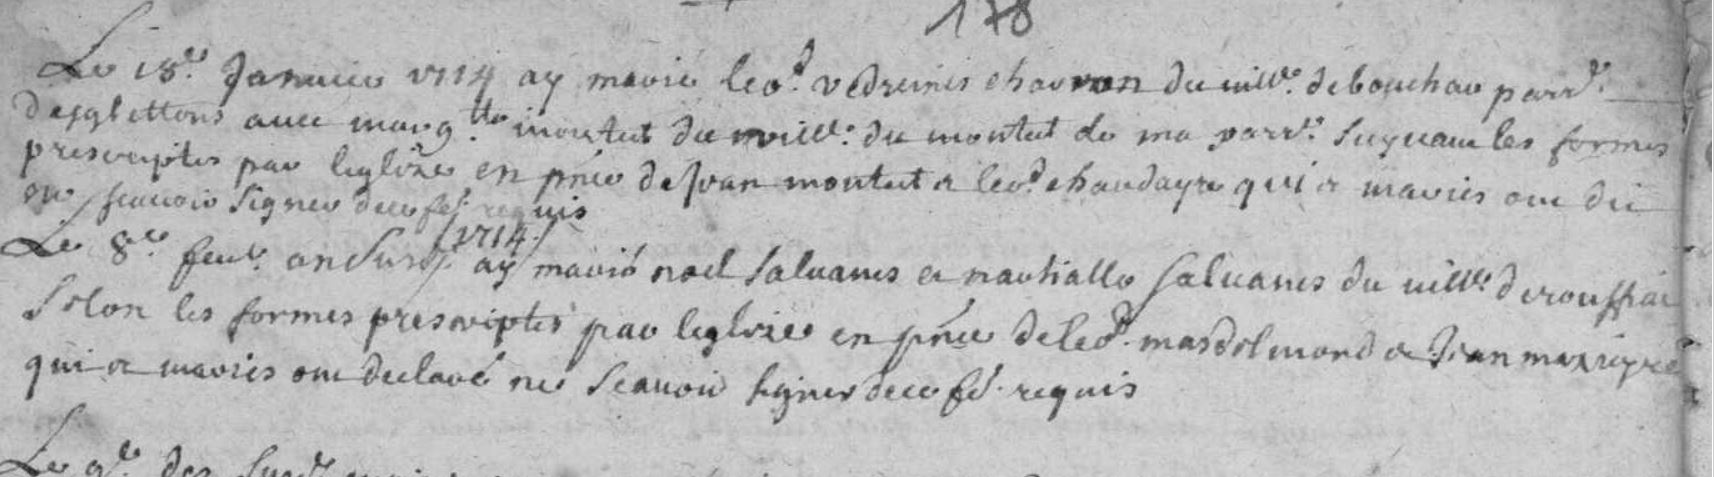 178
Le 18.e Januier 1714 ay marié leo.d vedrenis charron du vill.e de bouchar parr.e
desglettons auec marg.tte montut du vill.e du montut de ma parr.e suyuant les formes
prescriptes par leglize en p̃nce de Jean montut et leo.d chaudayre qui et mariés ont dit
ne scauoir signer de ce fe.s requis
Le 8.e feu.r an susd. /1714/ ay marié noel saluanes et nauhialle saluanes du vill.e de rouffiat
selon les formes prescriptes par leglize en p̃nce de leo.d masdelmond et Jean
qui et mariés ont declaré ne scauoir signer de ce fe. requis
Le 9.e des susd.